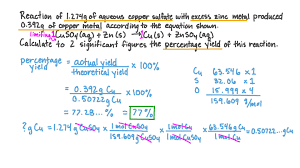 Reaction of 1.274g of aqueous copper sulfate with excess zinc metal produced
0.392g of copper metal according to the equation shown.
limiting 1CuSO4(aq) + Zn(s) → 1Cu(s) + ZnSO4(aq)
Calculate to 2 significant figures the percentage yield of this reaction.
percentage yield = actual yield / theoretical yield × 100%
= 0.392g Cu / 0.50722g Cu × 100%
= 77.28... % = 77%
Cu 63.546 × 1
S 32.06 × 1
O 15.999 × 4
159.609 g/mol
? g Cu = 1.274g CuSO4 × 1 mol CuSO4 / 159.609g CuSO4 × 1 mol Cu / 1 mol CuSO4 × 63.546g Cu / 1 mol Cu = 0.50722... g Cu